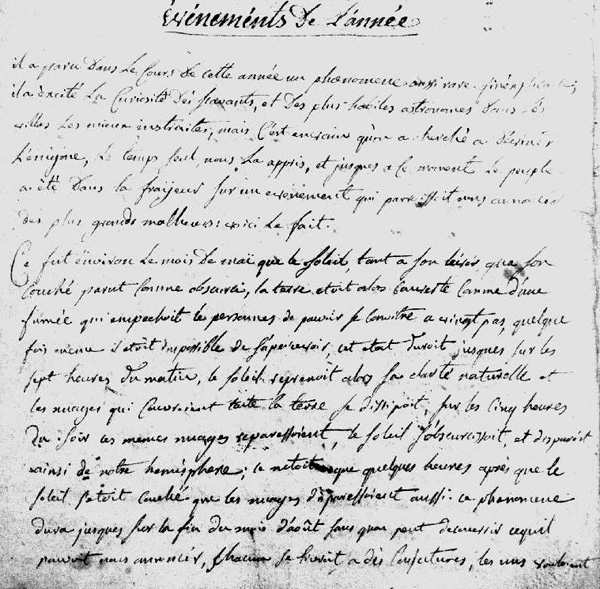 événéments De L'année
il a paru Dans Le Cours De cette année un phœnomene aussi rare
il a éxcité La Curiosité Dés sçavants, et Des plus habiles astronomes Dans Les
villes Les mieux instruites, mais C'est en vain qu'on a cherché a Déviner
L'enigme, Le temps seul nous L'a appris, et jusques a ce moment Le peuple
a été Dans la fraÿeur sur un evenement qui paroissoit nous annoncer
Des plus grands malheurs: voici Le fait.
Ce fut environ Le mois De mai que le soleil, tant a son levér que son
Couché parut Comme obscurci, la terre etoit alors Couverte Comme d'une
fumée qui empechoit les personnes de pouvoir se Connoitre a vingt pas, quelque
fois meme il étoit impossible de s'apercevoir, cet etat duroit jusques sur les
sept heures du matin, le soleil reprenoit alors sa clarté naturelle et
les nuages qui Couvroient toute la terre se dissipoit, sur les Cinq heures
Du soir ces memes nuages reparessoient, le soleil s'obscurcissoit, et disparoit
ainsi de notre hemisphere; ce n'etoit que quelques heures après que le
soleil s'etoit Couché que les nuages disparessoient aussi. ce phœnomene
dura jusques sur la fin du mois d'août sans qu'on peut decouvrir ce qu'il
pouvoit nous annoncér, Chacun se livroit a dés Conjectures, les uns vouloient